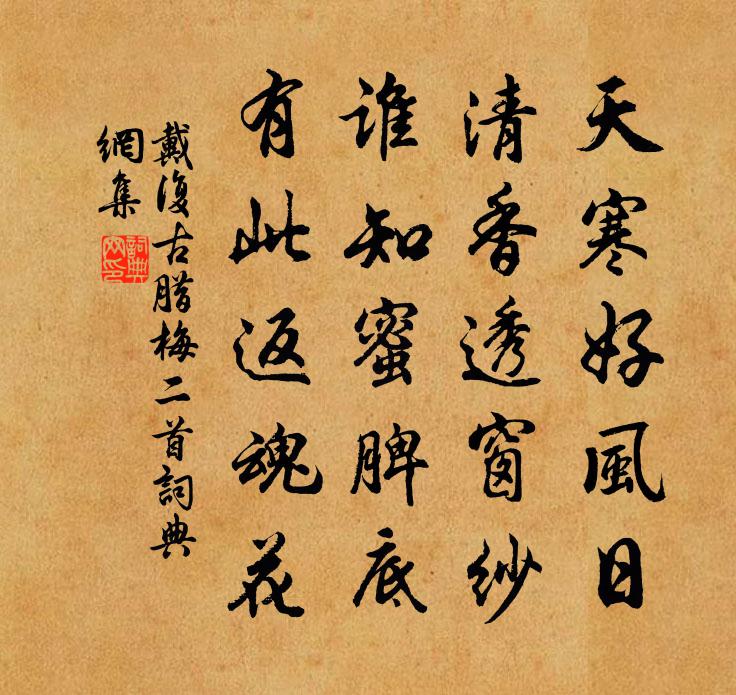 天寒好風日
清香透窗紗
誰知蜜脾底
有此返魂花
戴復古腊梅二首詞典
網集
詞典
网印